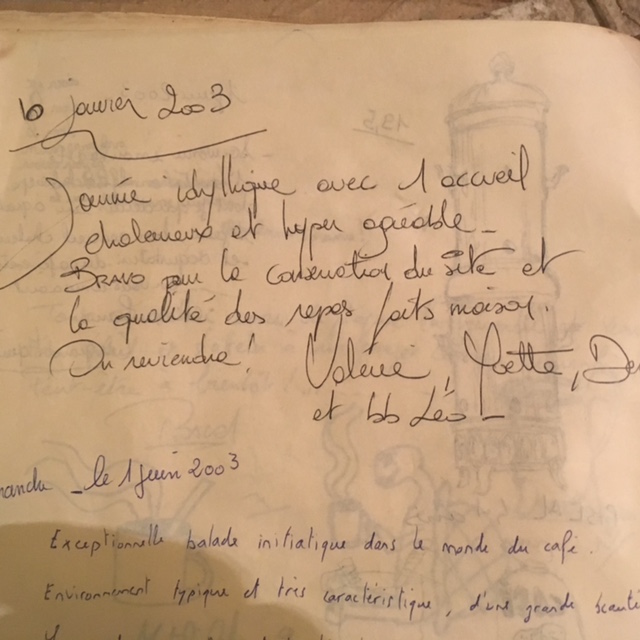 janvier 2003
Journée idyllique avec 1 accueil
chaleureux et hyper agréable_
BRAVO pour la conservation du site et
la qualité des repas faits maison.
On reviendra! Valérie, Yvette, De
et bb Léo!
_le 1 juin 2003
Exceptionnelle balade initiatique dans le monde du café.
Environnement typique et très caractéristique, d'une grande beauté